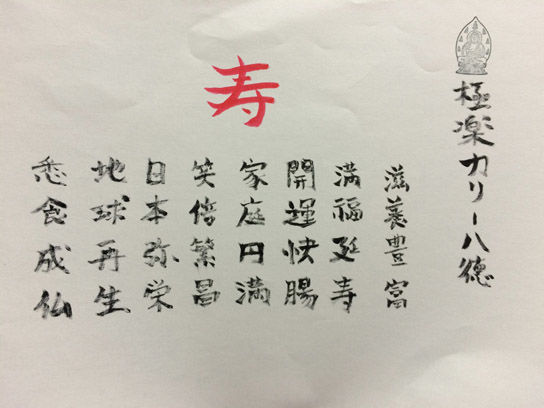 極楽カリー八徳
寿
滋養豊富
満福延寿
開運快腸
家庭円満
笑倍繁昌
日本弥栄
地球再生
悉食成仏